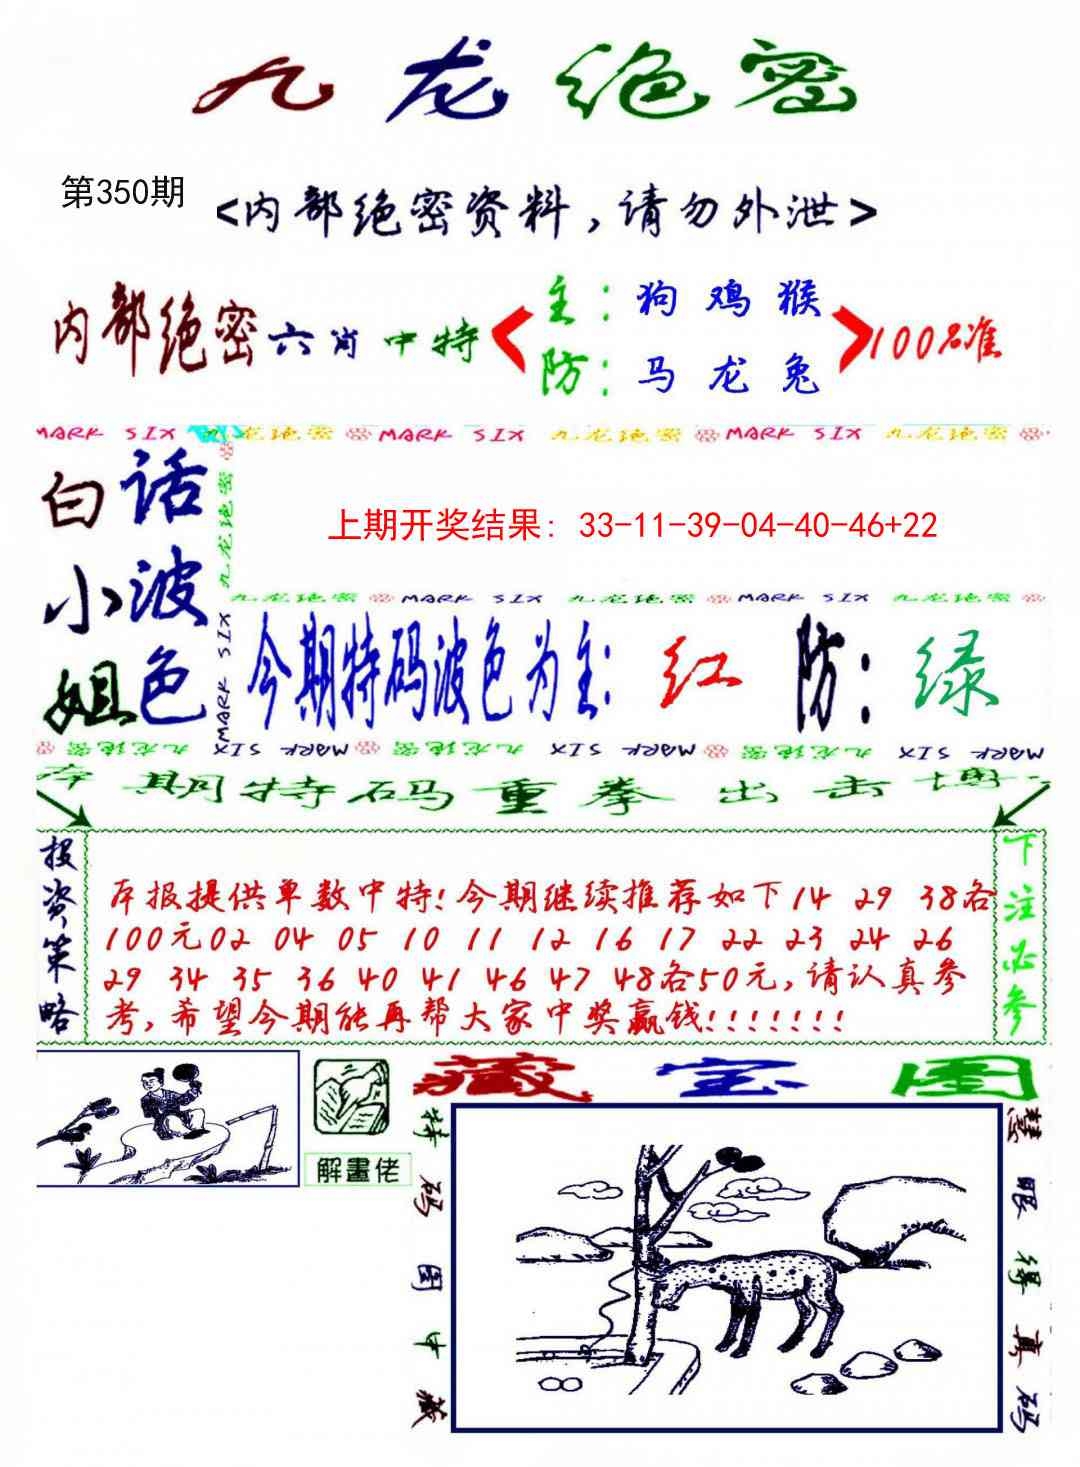 九龙绝密
第350期
<内部绝密资料，请勿外泄>
内部绝密六肖中特
主：狗 鸡 猴
防：马 龙 兔
100%准
MARK SIX 九龙绝密 MARK SIX 九龙绝密 MARK SIX 九龙绝密
白话
小波
姐色
九龙绝密
MARK SIX
上期开奖结果: 33-11-39-04-40-46+22
九龙绝密 MARK SIX 九龙绝密 MARK SIX 九龙绝密
今期特码波色为主：红 防：绿
九龙绝密 MARK SIX 九龙绝密 MARK SIX 九龙绝密 MARK SIX
本期特码重拳出击博
投资策略
本报提供单数中特！今期继续推荐如下14 29 38各
100元02 04 05 10 11 12 16 17 22 23 24 26
29 34 35 36 40 41 46 47 48各50元，请认真参
考，希望今期能再帮大家中奖赢钱！！！！！！！
下注必参
解畫佬
藏宝图
特码图中藏
慧眼得真码